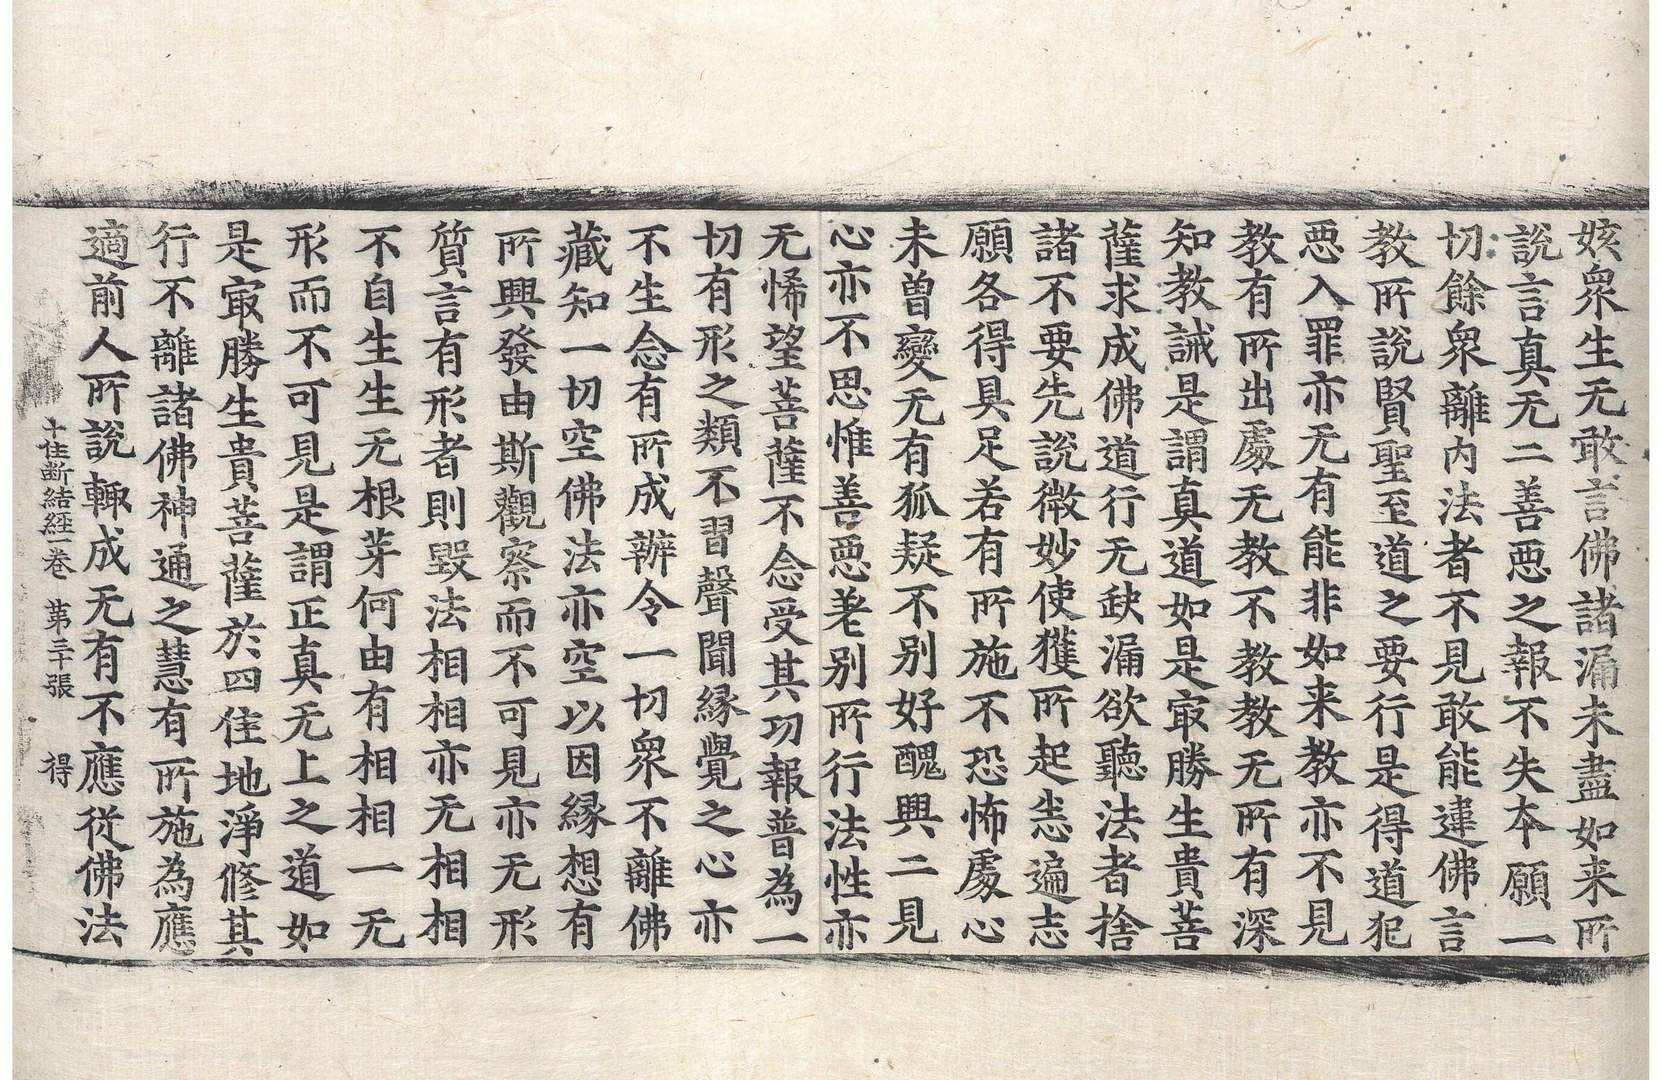 姟衆生无敢言佛諸漏未盡如来所
說言真无二善悪之報不失本願一
切餘衆離内法者不見敢能違佛言
教所說賢聖至道之要行是得道犯
悪入罪亦无有能非如来教亦不見
教有所出處无教不教教无所有深
知教誡是謂真道如是㝡勝生貴菩
薩求成佛道行无缺漏欲聽法者捨
諸不要先說微妙使獲所起恚遍志
願各得具足若有所施不恐怖處心
未曾變无有狐疑不别好醜興二見
心亦不思惟善悪差别所行法性亦
无悕望菩薩不念受其功報普為一
切有形之類不習聲聞縁覺之心亦
不生念有所成辦令一切衆不離佛
藏知一切空佛法亦空以因縁想有
所興發由斯觀察而不可見亦无形
質言有形者則毀法相相亦无相相
不自生生无根芽何由有相相一无
形而不可見是謂正真无上之道如
是㝡勝生貴菩薩於四住地淨修其
行不離諸佛神通之慧有所施為應
適前人所說輙成无有不應從佛法
十住断結經一巻 第三十張 得